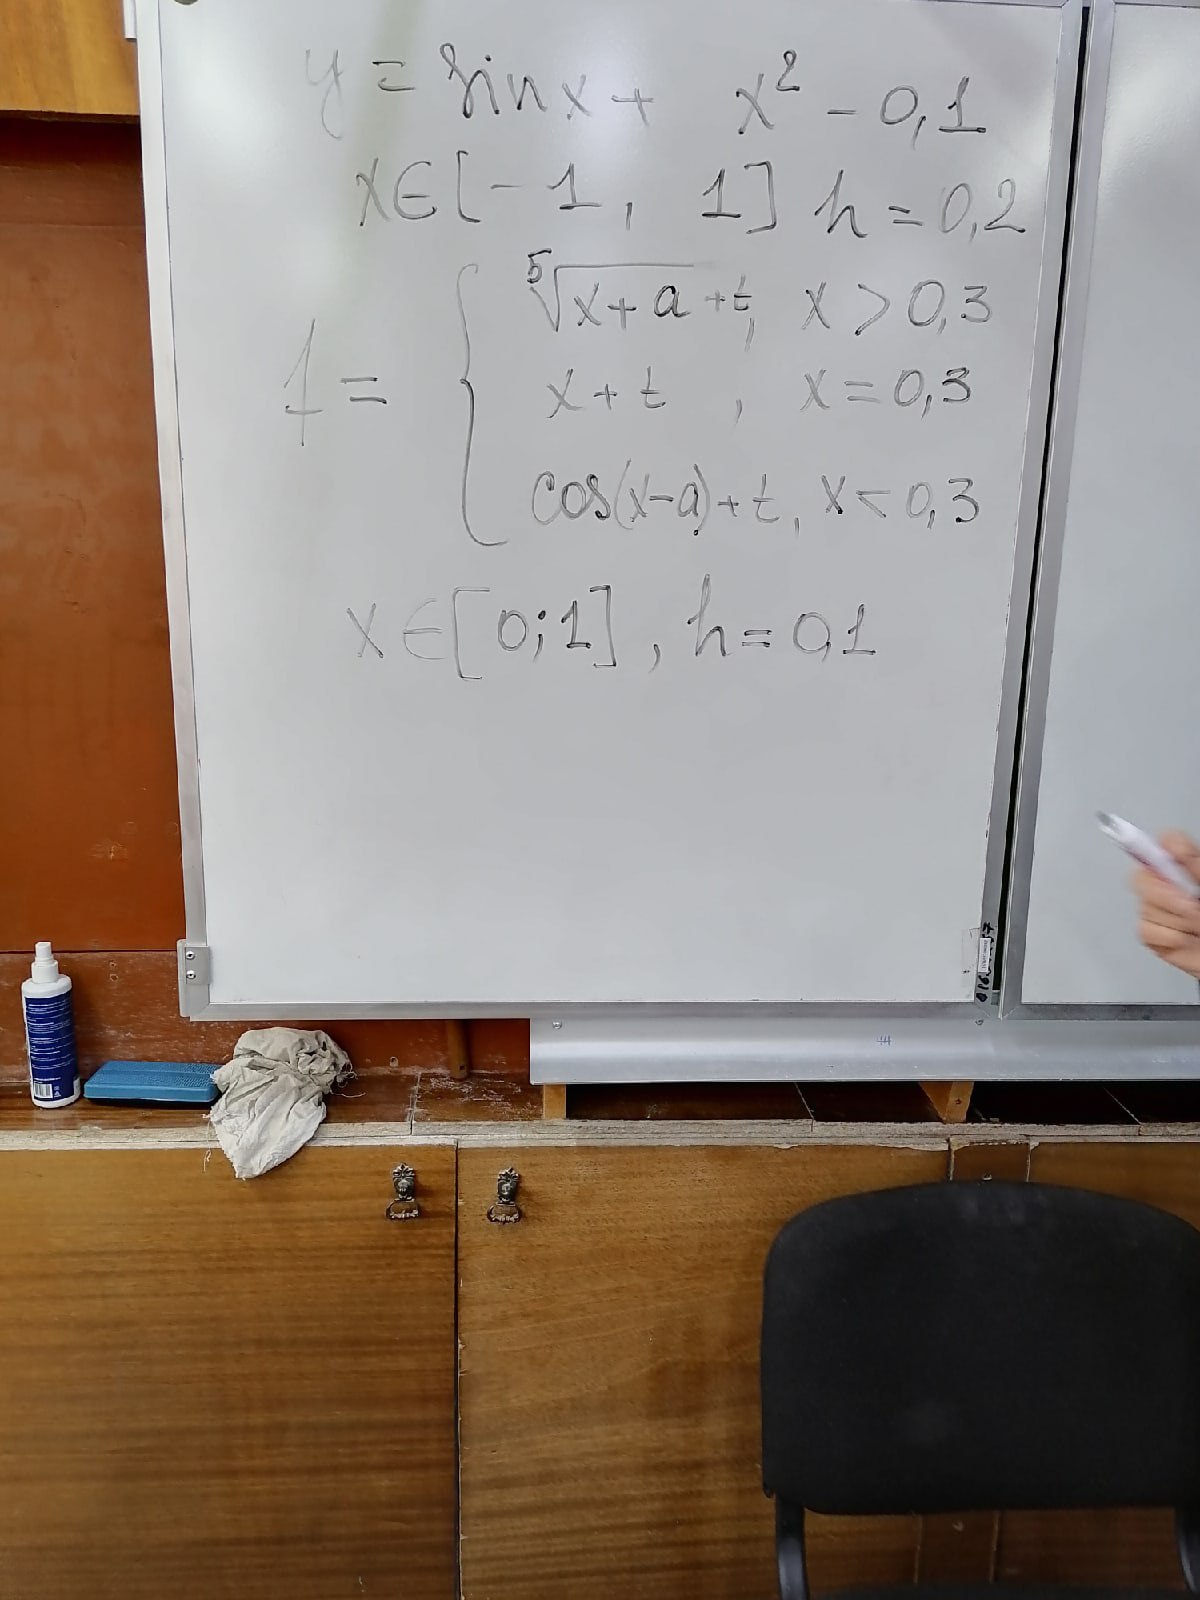 y = sin x + x² - 0,1
x∈[-1, 1] h = 0,2
f = { ⁵√(x+a) + t, x > 0,3
x + t , x = 0,3
cos(x-a) + t, x < 0,3
x ∈ [0;1], h = 0,1